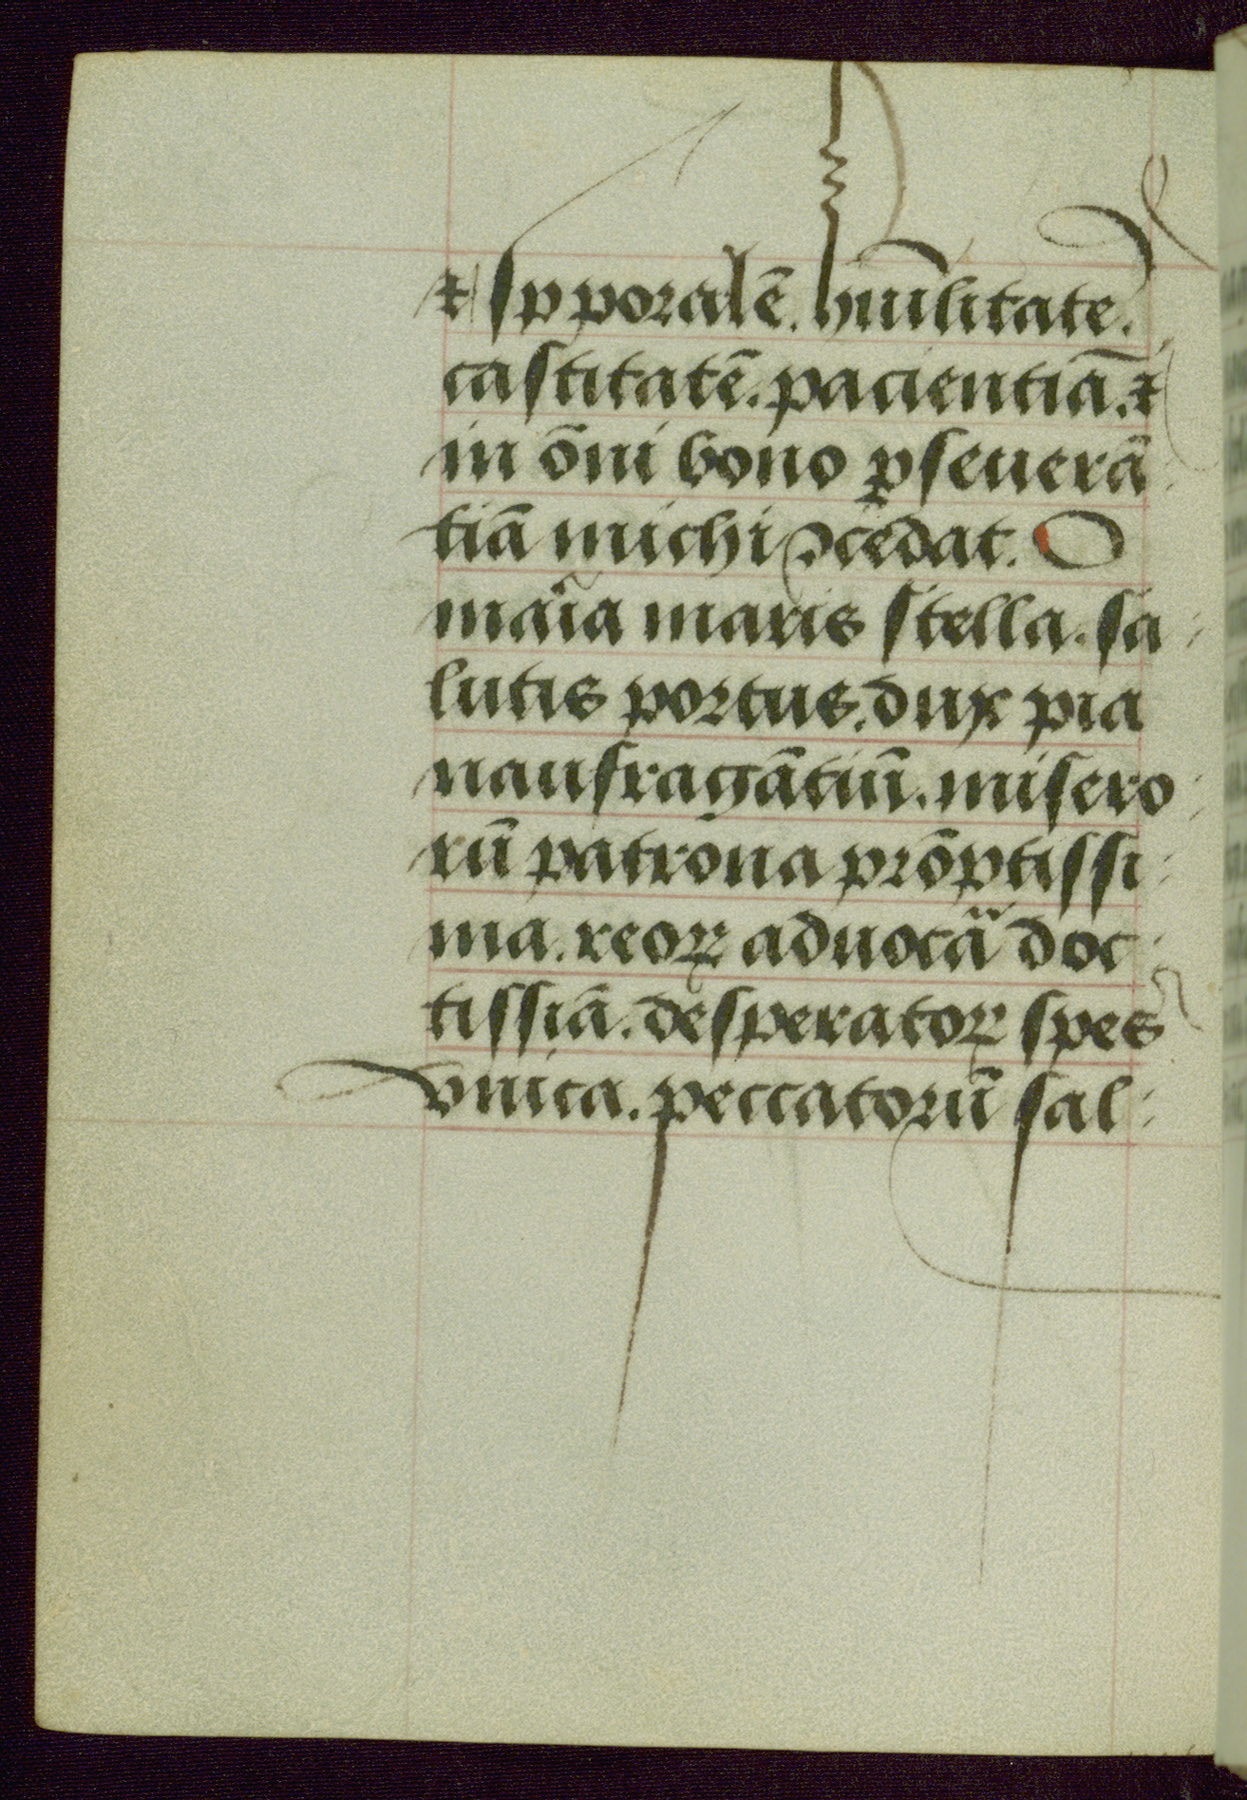 ⁊ spporalē. huīlitatē.
castitatē. pacientiā. ⁊
in ōni bono ꝑseuerā
tiā michi ꝯcedat. O
maͥia maris stella. sa
lutis portus. dux pia
naufragātiū. misero
rū patrona prōptissi
ma. reoꝝ aduocaͣ doc
tissiā. desperatoꝝ spes
vnica. peccatorū sal